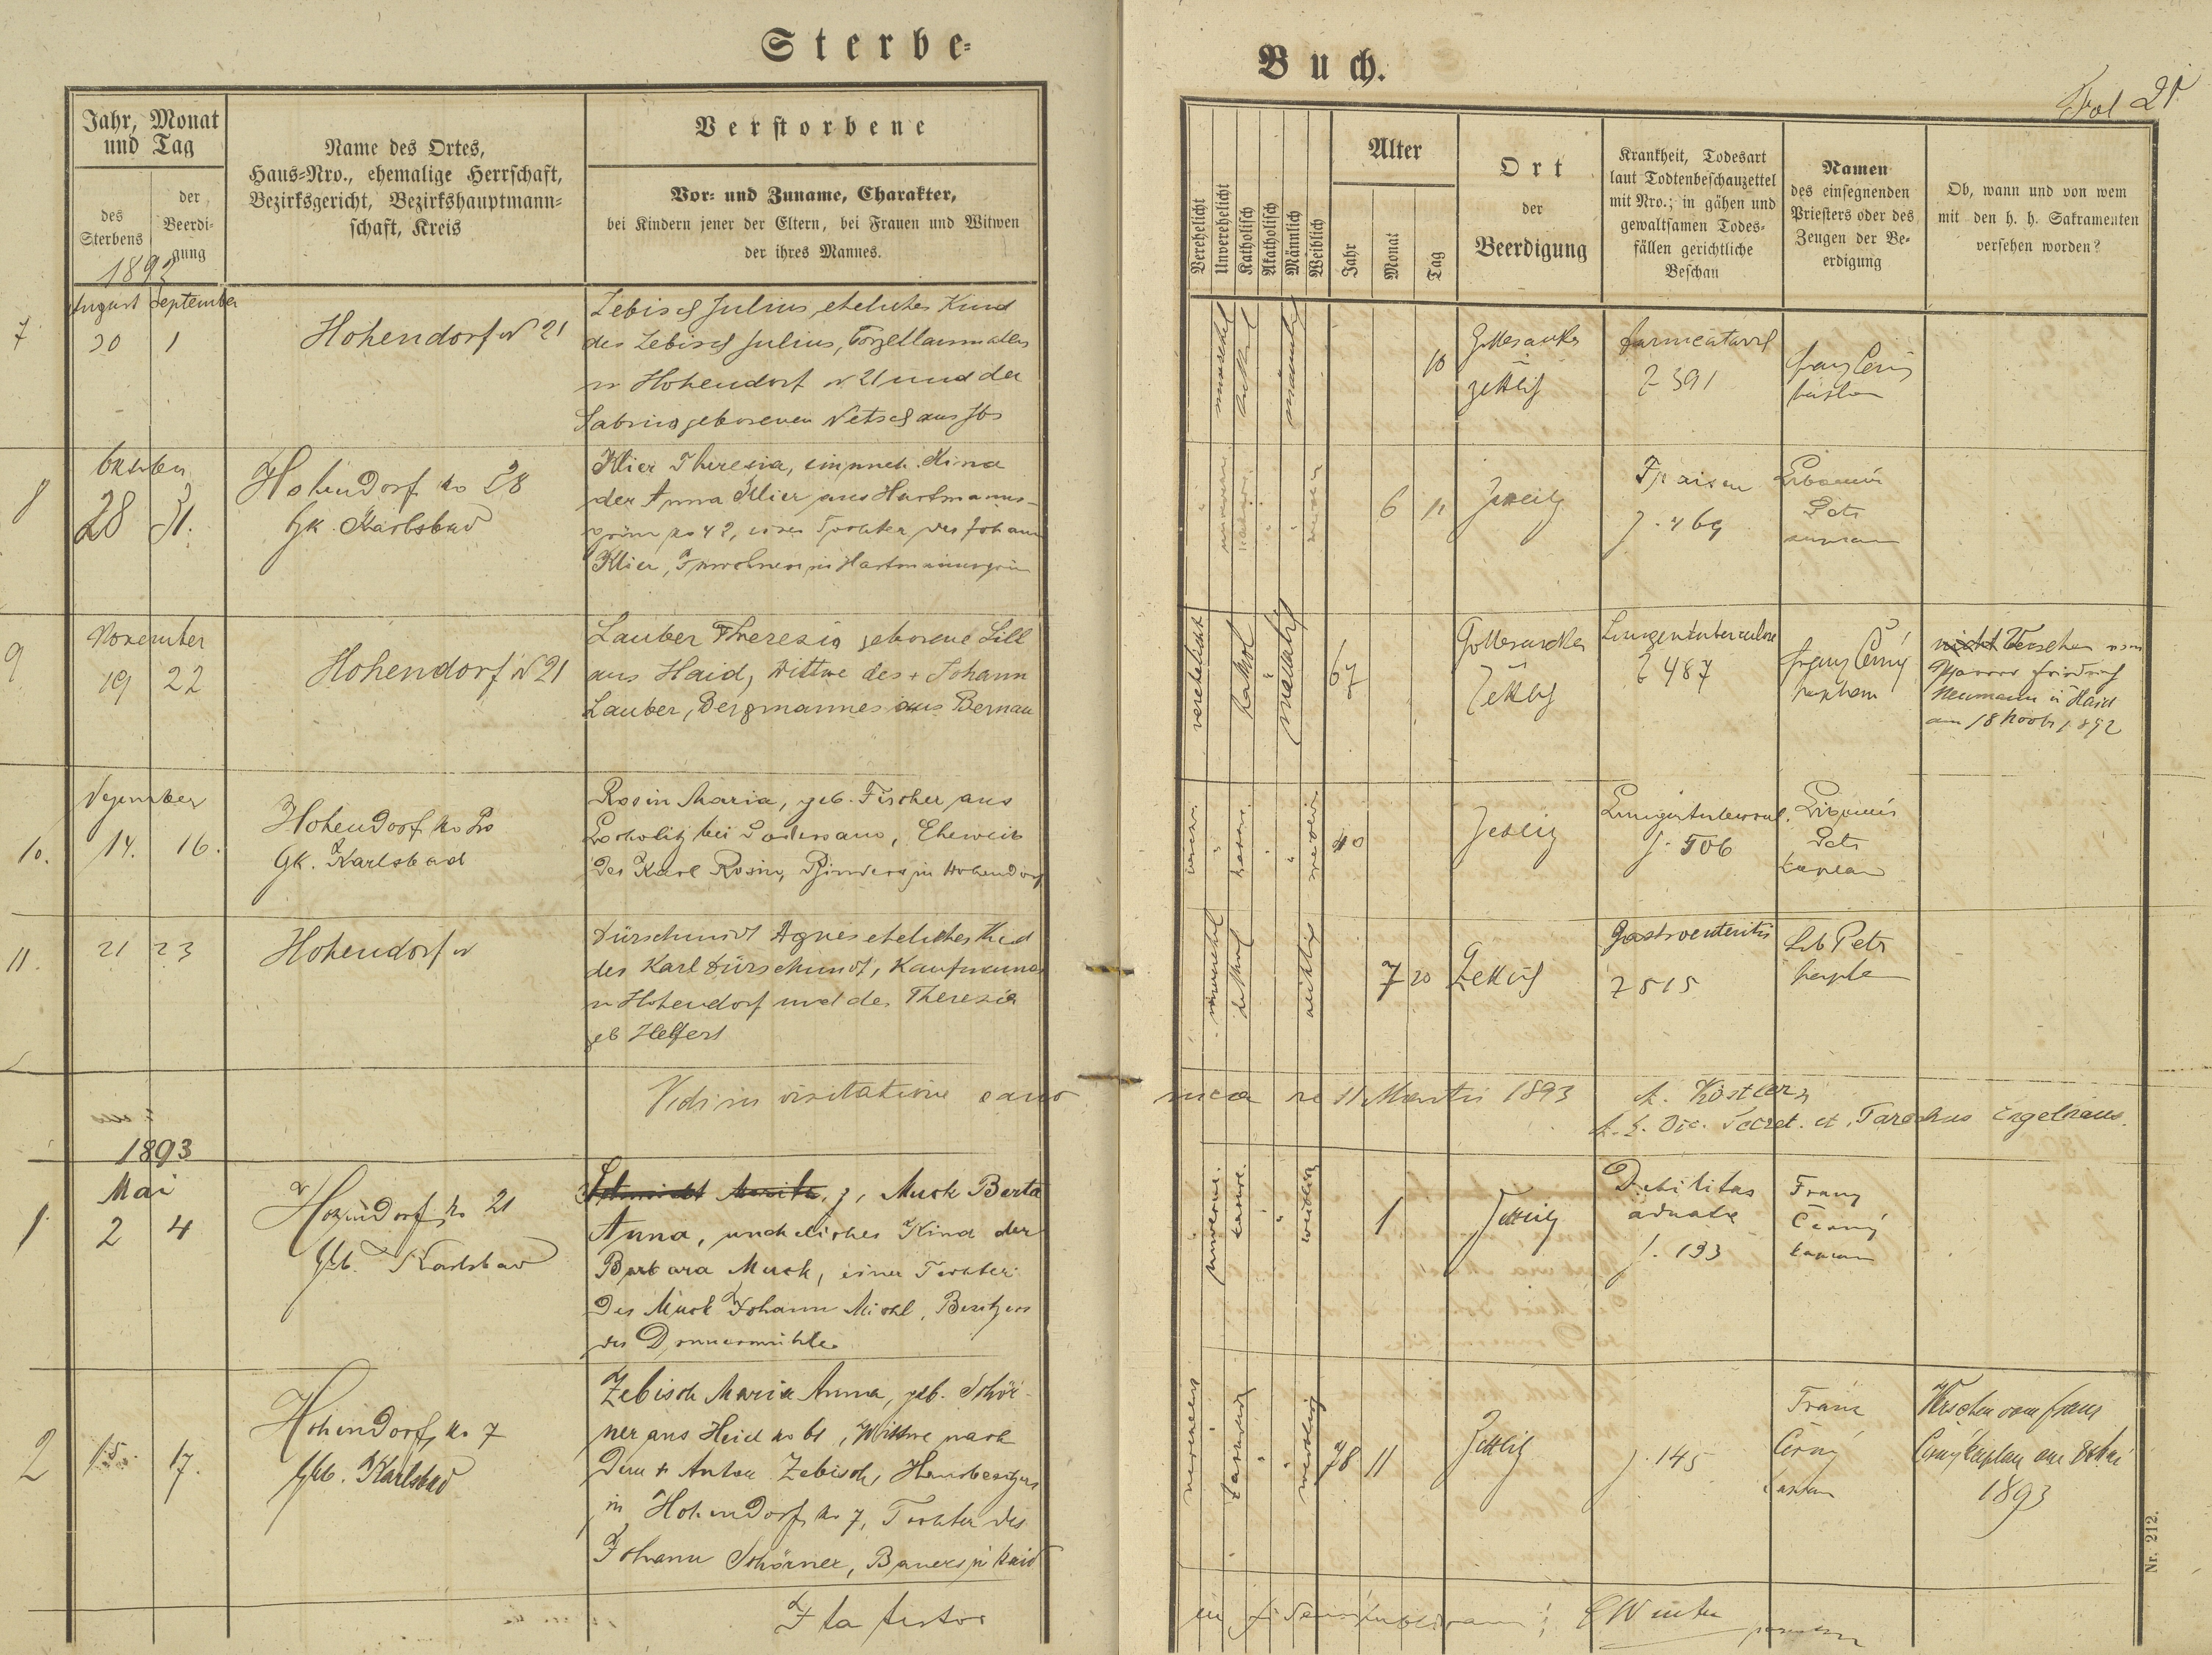 Sterbe-
Buch.
Fol 21
Jahr, Monat
und Tag
des
Sterbens
der
Beerdi-
gung
Name des Ortes,
Haus-Nro., ehemalige Herrschaft,
Bezirksgericht, Bezirkshauptmann-
schaft, Kreis
Verstorbene
Vor- und Zuname, Charakter,
bei Kindern jener der Eltern, bei Frauen und Witwen
der ihres Mannes.
Verehelicht
Unverehelicht
Katholisch
Akatholisch
Männlich
Weiblich
Alter
Jahr
Monat
Tag
Ort
der
Beerdigung
Krankheit, Todesart
laut Todtenbeschauzettel
mit Nro.; in gähen und
gewaltsamen Todes-
fällen gerichtliche
Beschau
Namen
des einsegnenden
Priesters oder des
Zeugen der Be-
erdigung
Ob, wann und von wem
mit den h. h. Sakramenten
versehen worden?
1892
7
August September
30 1
Hohendorf N 21
Zebisch Julius, eheliches Kind
des Zebisch Julius, Porzellanmalers
in Hohendorf N 21 und der
geborenen
männlich
10
Gottesacker
in
Zettlitz
Z 391
Franz Černý
8
Oktober
28 31.
Hohendorf No 28
Gk. Karlsbad
Klier Theresia, Kind
der Anna Klier aus Hartmanns-
grün No 42, einer Tochter des Johann
Klier, Inwohners in Hartmannsgrün
6 11
Zettlitz
Fraisen
Z. 469
Petr
9
November
19 22
Hohendorf N 21
Lauber Theresia geborene Lill
aus Haid, Wittwe des + Johann
Lauber, Bergmannes aus Bernau
verehelicht
kathol
67
Gottesacker
Zettlitz
Lungentuberculose
Z 487
Franz Černý
Kaplan
nicht Versehen vom
Pfarrer Friedrich
Neumann in Haid
am 18 Novb 1892
10.
Dezember
14. 16.
Hohendorf No
Gk. Karlsbad
Rosin Maria, geb. Fischer aus
bei Podersam, Eheweib
des Karl Rosin, in Hohendorf
40
Zettlitz
Z. 506
Petr
Kaplan
11.
21 23
Hohendorf N
Dürschmidt Agnes eheliches Kind
des Karl Dürschmidt, Kaufmannes
in Hohendorf und der Theresia
geb Helfert
7 20
Zettlitz
Gastroenteritis
Z 515
Lib Petr
Kaplan
Vidi in visitatione cano
nica die 11 Martii 1893
A. Köstler
Secret. et Parochus Engelhaus.
1893
1.
Mai
2 4
Hohendorf No 21
Gb. Karlsbad
Schmidt, Muck Berta
Anna, uneheliches Kind der
Barbara Muck, einer Tochter
des Muck Johann Michl, Besitzers
der Donnermühle
weiblich
1
Zettlitz
Debilitas
Z. 193
Franz
Černý
Kaplan
2
15. 17.
Hohendorf, No 7
Gb. Karlsbad
Zebisch Maria Anna, geb. Schör-
ner aus Heid No 61, Wittwe nach
dem + Anton Zebisch, Hausbesitzers
in Hohendorf No 7, Tochter des
Johann Schörner, Bauers in Haid
weiblich
78 11
Zettlitz
Z. 145
Franz
Černý
Kaplan
Versehen vom Franz
Černý Kaplan am 8 Mai
1893
Ita testor
Winter
Nr. 212.